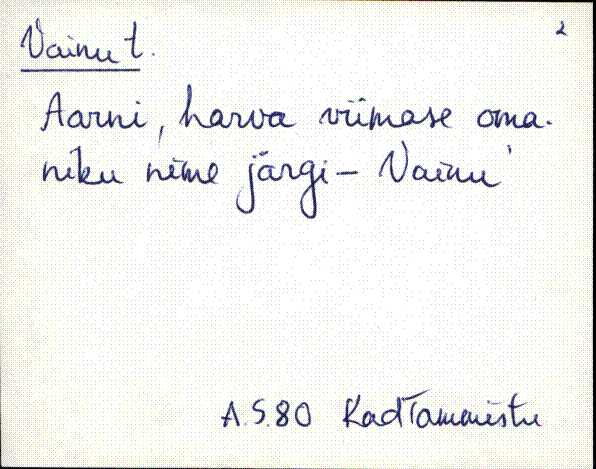 2
Vainu t.
Aarni, harva viimase oma-
niku nime järgi – Vainu'
A.S.80 Kadi Tammistu